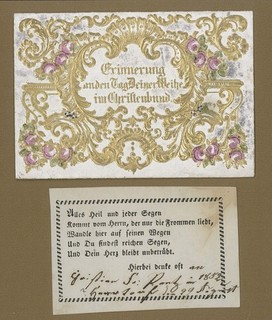 Erinnerung
an den Tag Deiner Weihe
im Christenbund.
Alles Heil und jeder Segen
Kommt vom Herrn, der nur die Frommen liebt,
Wandle hier auf seinen Wegen
Und Du findest reichen Segen,
Und Dein Herz bleibt unbetrübt.
Hierbei denke oft an